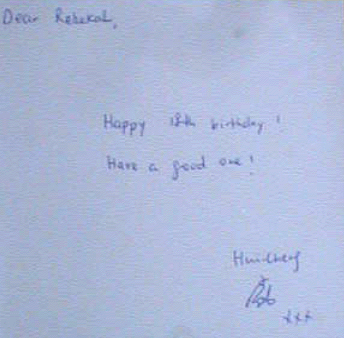 Dear Rebekah,
Happy 18th birthday!
Have a good one!
xxx